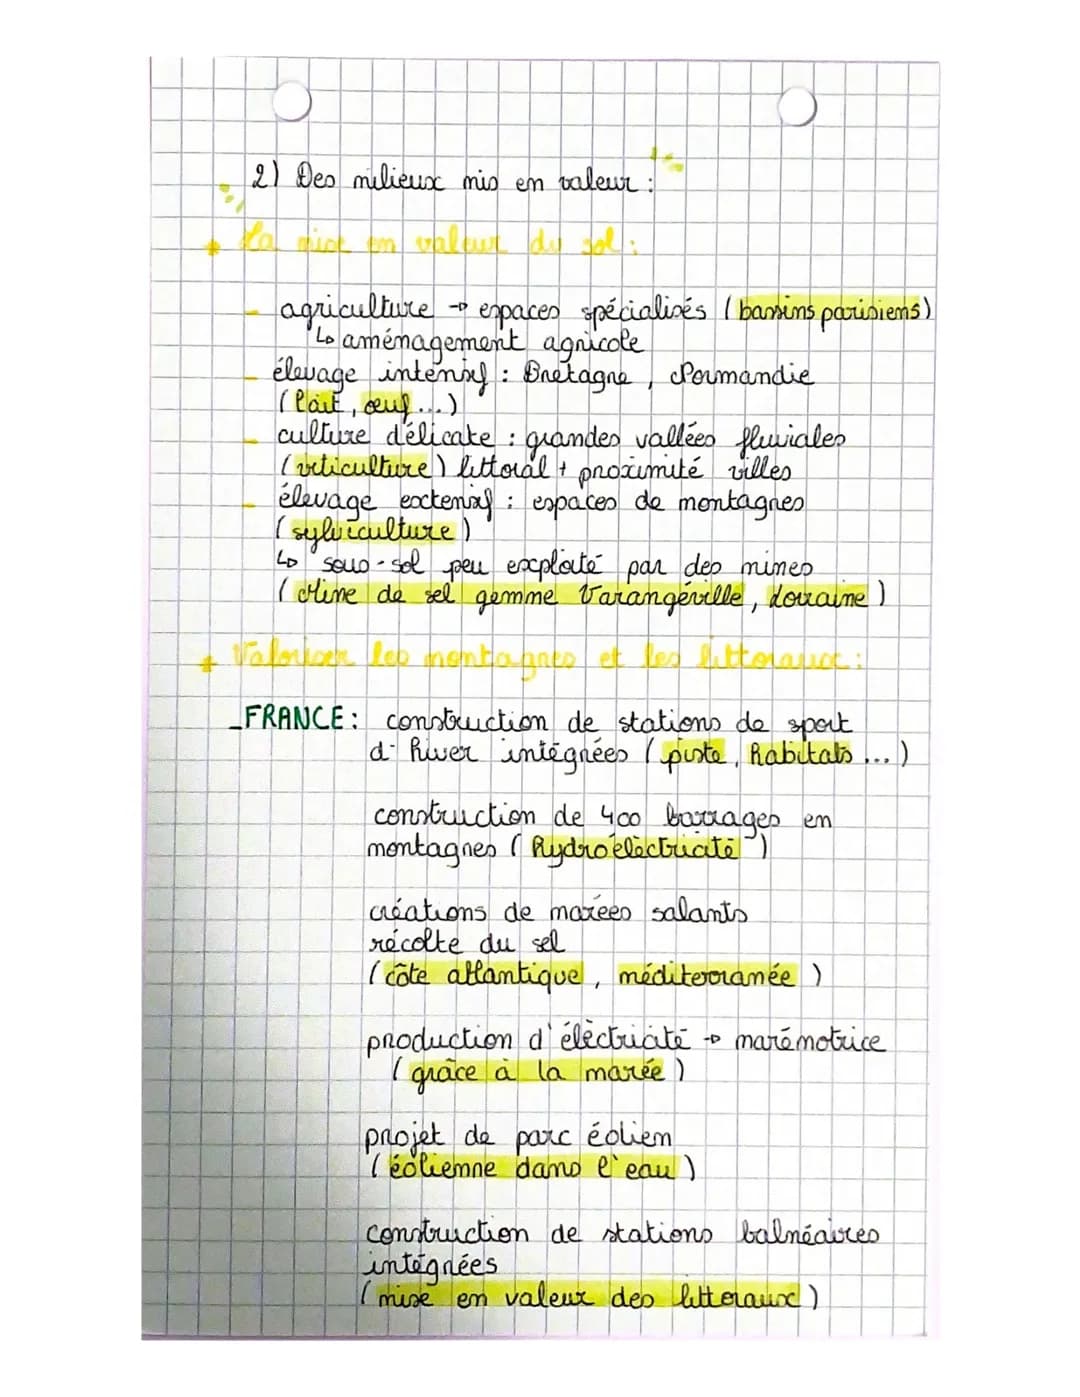 2) Des milieux mis en valeur :
La mise en valeur du sol :
- agriculture → espaces spécialisés (bassins parisiens)
↳ aménagement agricole
- élevage intensif : Bretagne, Normandie
(lait, œuf...)
- culture délicate : grandes vallées fluviales
(viticulture) littoral + proximité villes
- élevage extensif : espaces de montagnes
(sylviculture)
↳ sous-sol peu exploité par des mines
(Mine de sel gemme Varangéville, Lorraine)
Valoriser les montagnes et les littoraux :
_FRANCE : construction de stations de sport
d'hiver intégrées (piste, habitats...)
construction de 400 barrages en
montagnes (hydroélèctricité)
créations de marées salants
récolte du sel
(côte atlantique, méditerranée)
production d'élèctricité → marémotrice
(grâce à la marée)
projet de parc éolien
(éolienne dans l'eau)
construction de stations balnéaires
intégrées
(mise en valeur des littoraux)